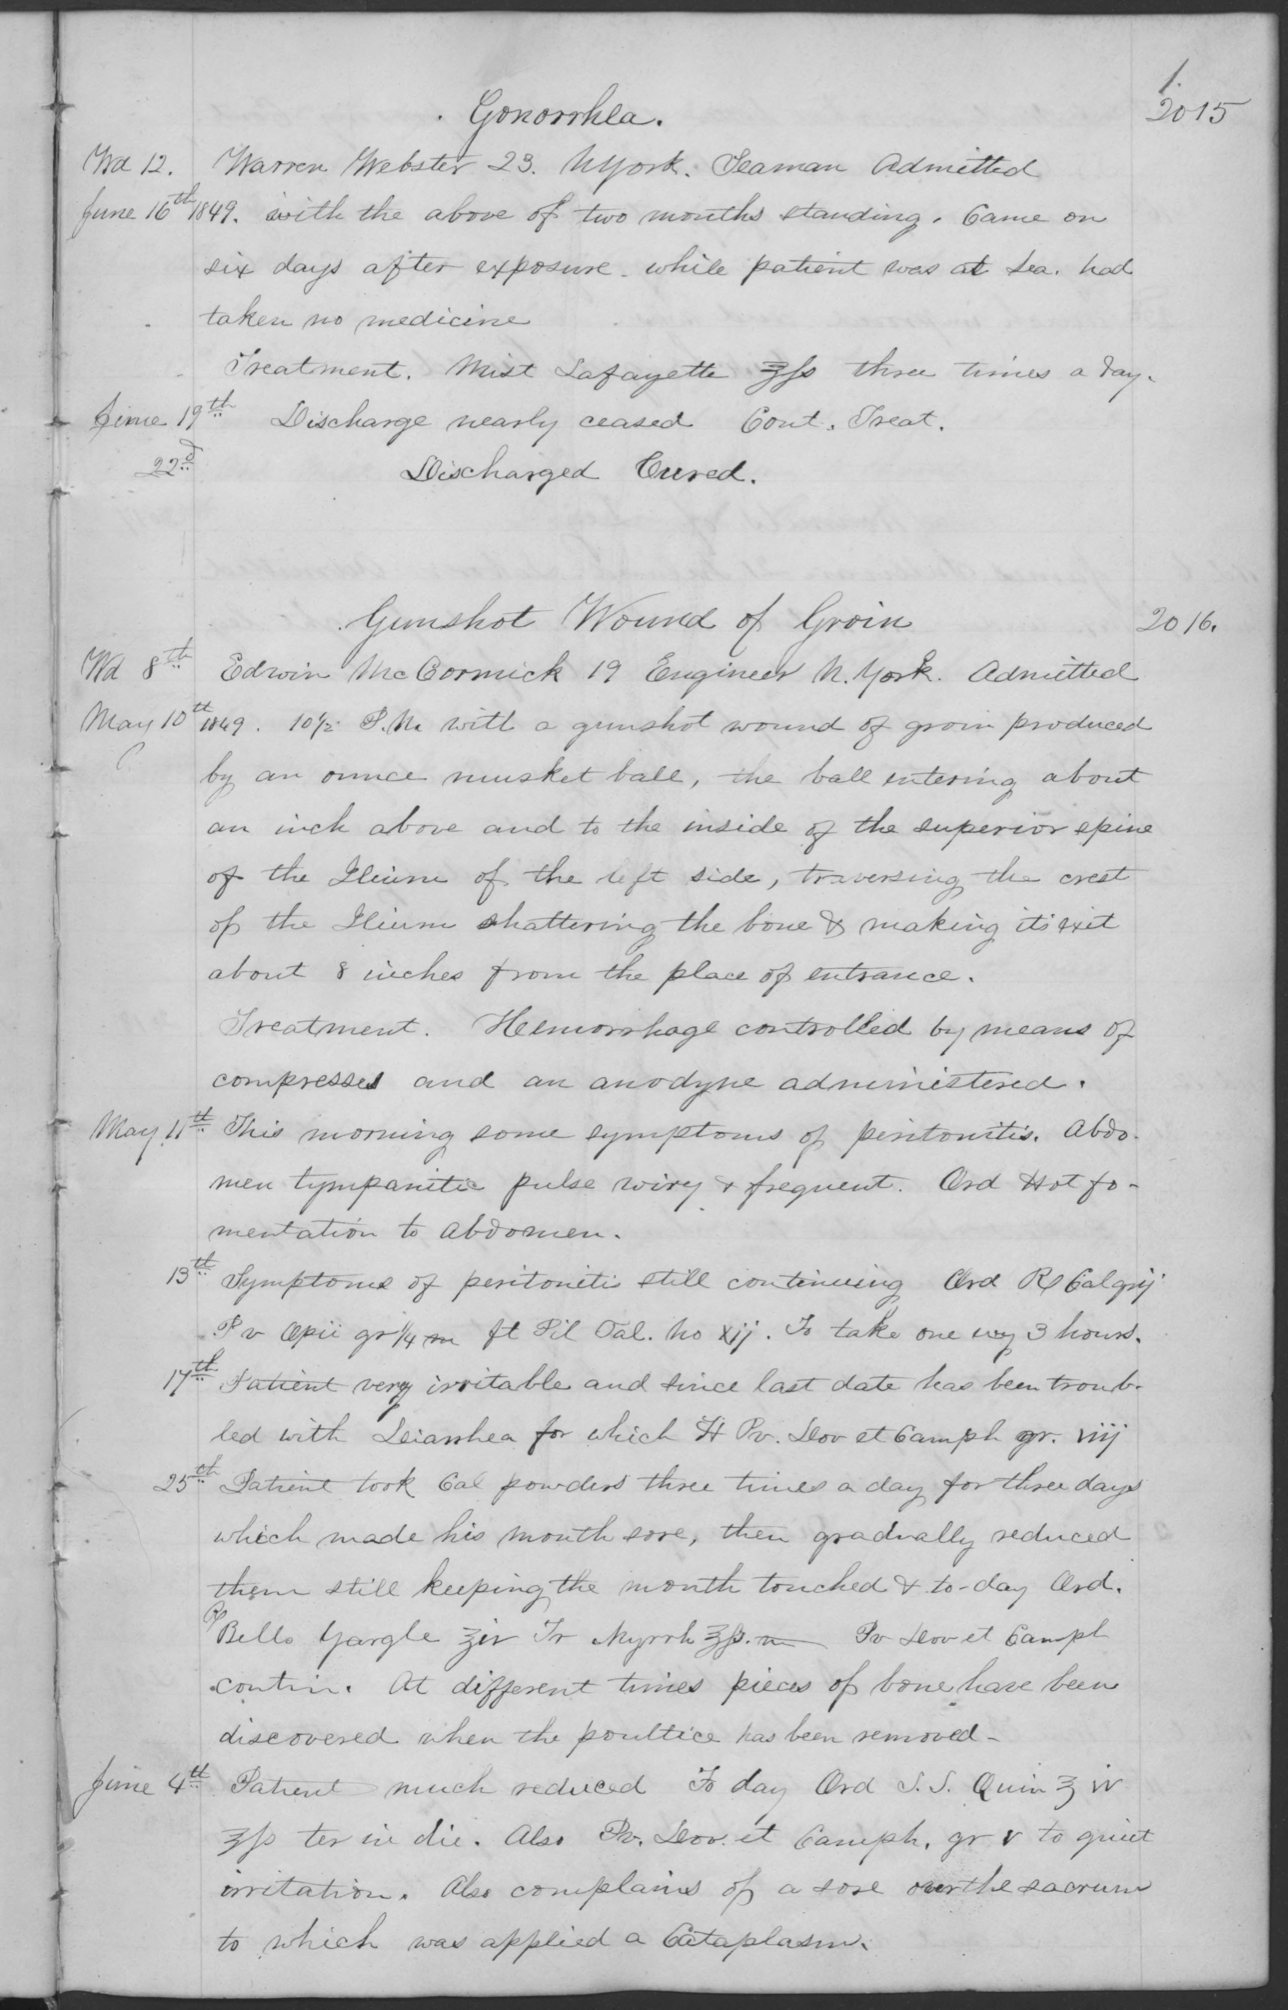 1.
Gonorrhea. 2015
Wd 12. Warren Webster 23. N York. Seaman Admitted
June 16th 1849. with the above of two months standing. Came on
six days after exposure while patient was at Sea. had
taken no medicine
Treatment. Mist Lafayette ℥ſs three times a day.
June 19th Discharge nearly ceased Cont. Treat.
22d Discharged Cured.
Gunshot Wound of Groin 2016.
Wd 8th Edwin McCormick 19 Engineer N. York. Admitted
May 10th 1849. 10½ P.M. with a gunshot wound of groin produced
by an ounce musket ball, the ball entering about
an inch above and to the inside of the superior spine
of the Ilium of the left side, traversing the crest
of the Ilium shattering the bone & making its exit
about 8 inches from the place of entrance.
Treatment. Hemorrhage controlled by means of
compresses and an anodyne administered.
May 11th This morning some symptoms of peritonitis. Abdo-
men tympanitic pulse wiry & frequent. Ord Hot fo-
mentation to abdomen.
13th Symptoms of peritonitis still continuing Ord Rx Cal grij
Pv Opii gr ¼ m ft Pil Tal. No xij. To take one evy 3 hours.
17th Patient very irritable and since last date has been troub-
led with Diarrhea for which Pv. Dov et Camph gr. viij
25th Patient took Cal powders three times a day for three days
which made his mouth sore, then gradually reduced
them still keeping the mouth touched & to-day Ord.
Rx Bello Gargle ℥iv Tr Myrrh ℥ſs. m Pv Dov et Camph
contin. At different times pieces of bone have been
discovered when the poultice has been removed-
June 4th Patient much reduced To day Ord S.S. Quin ℥ iv
℥ſs ter in die. Also Pv. Dov. et Camph. gr v to quiet
irritation. Also complains of a sore over the sacrum
to which was applied a Cataplasm.